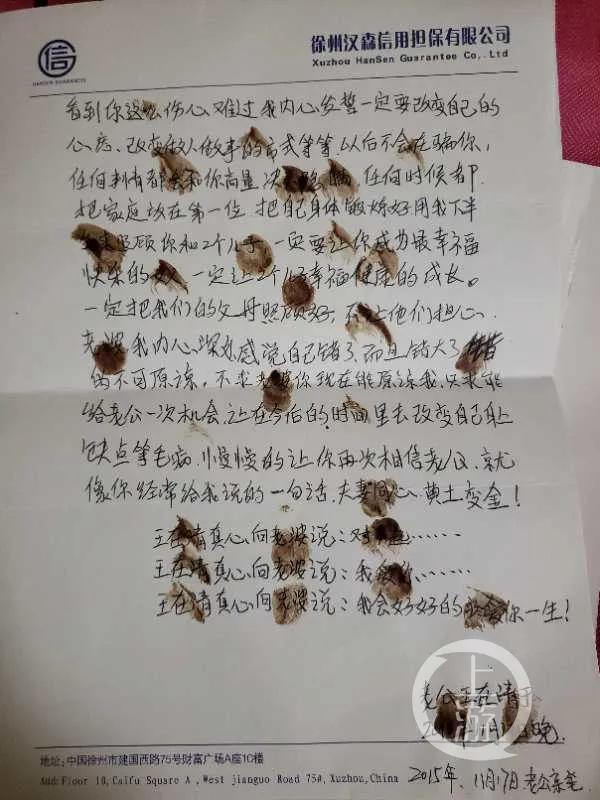 信
HANSEN GUARANTEE
徐州汉森信用担保有限公司
Xuzhou HanSen Guarantee Co,.Ltd
看到你这么伤心难过我内心发誓一定要改变自己的
心态、改变做人做事的方式等等.以后不会在骗你,
任何事情都会和你商量 任何时候都
把家庭放在第一位 把自己身体锻炼好用我下半
照顾你和2个儿子 一定要让你成为最幸福
快乐的女人 一定让2个儿子幸福健康的成长。
一定把我们的父母照顾好,不让他们担心.
老婆 我内心深处感觉自己错了而且错大了
不可原谅,不求老婆你现在能原谅我,只求能
给老公一次机会,让在今后的时间里去改变自己身上
缺点等毛病.慢慢的让你再次相信老公.就
像你经常给我说的一句话.夫妻同心.黄土变金!
王在清真心向老婆说:对不起……
王在清真心向老婆说:我爱你……
王在清真心向老婆说:我会好好的 你一生!
老公王在清于
晚
2015年.11月17日 老公亲笔
上游
地址:中国徐州市建国西路75号财富广场A座10楼
Add:Floor 10,Caifu Square A ,West jianguo Road 75#,Xuzhou,China